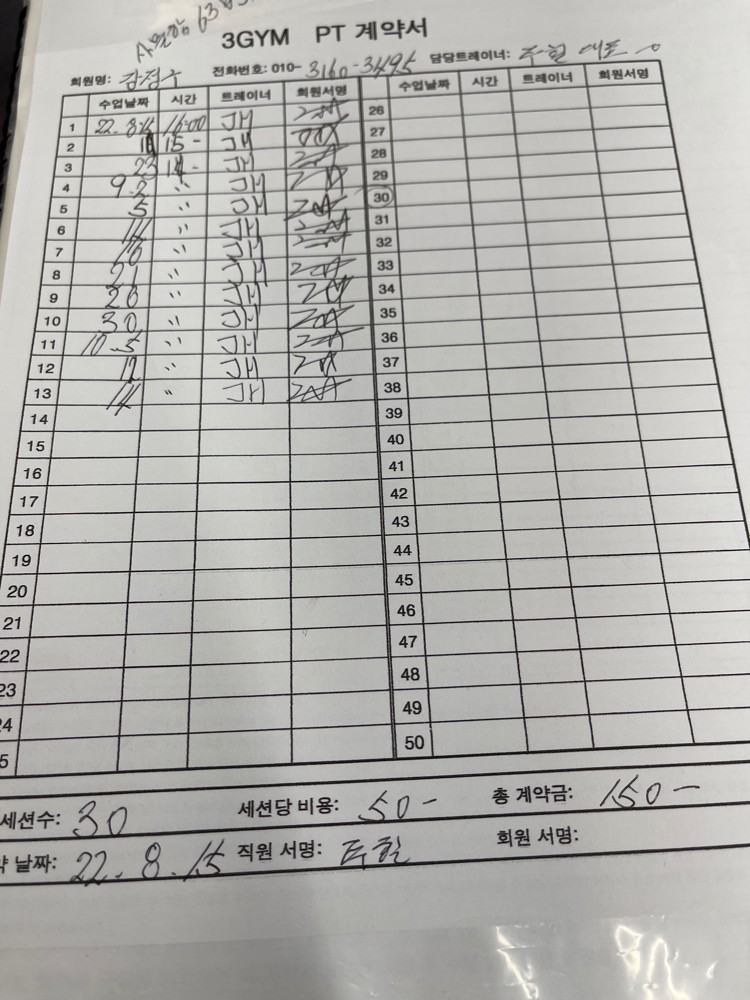 3GYM PT 계약서
회원명: 전화번호: 010-3160-3495 담당트레이너: 대표
수업날짜 시간 트레이너 회원서명 수업날짜 시간 트레이너 회원서명
1 22. 8. 16:00 JH 26
2 15 - JH 27
3 23 14 - JH 28
4 9.2 " JH 29
5 5 " JH 30
6 14 " JH 31
7 16 " JH 32
8 21 " JH 33
9 26 " JH 34
10 30 " JH 35
11 10.5 " JH 36
12 12 " JH 37
13 14 " JH 38
14 39
15 40
16 41
17 42
18 43
19 44
20 45
21 46
22 47
23 48
24 49
5 50
세션수: 30 세션당 비용: 50- 총 계약금: 150-
약 날짜: 22. 8. 15 직원 서명: 회원 서명: